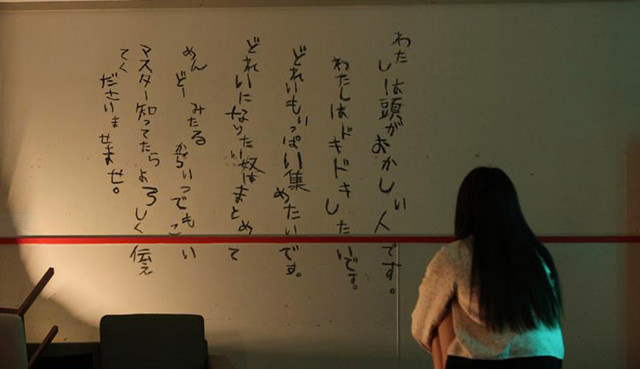 わたしは頭がおかしい人です。
わたしはドキドキしたいです。
どれいもいっぱい集めたいです。
どれいになりたい奴はまとめて
めんどーみたるからいつでもこい
マスター知ってたらよろしく伝え
てくださいませませ。